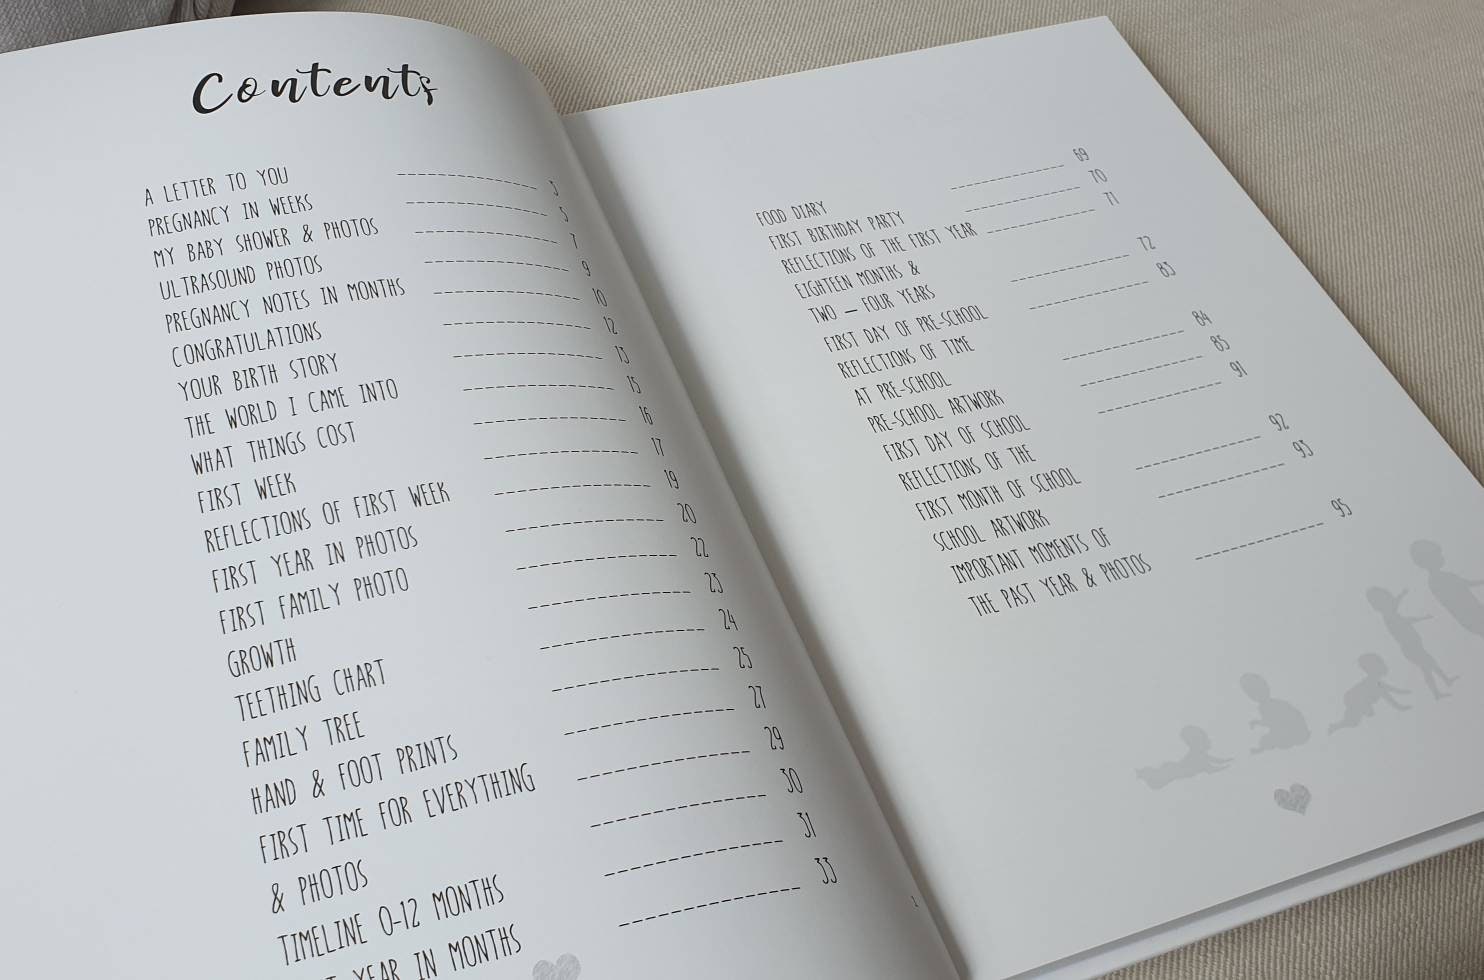 Contents
A LETTER TO YOU ---------------- 3
PREGNANCY IN WEEKS ---------------- 5
MY BABY SHOWER & PHOTOS ---------------- 7
ULTRASOUND PHOTOS ---------------- 9
PREGNANCY NOTES IN MONTHS ---------------- 10
CONGRATULATIONS ---------------- 12
YOUR BIRTH STORY ---------------- 13
THE WORLD I CAME INTO ---------------- 15
WHAT THINGS COST ---------------- 16
FIRST WEEK ---------------- 17
REFLECTIONS OF FIRST WEEK ---------------- 19
FIRST YEAR IN PHOTOS ---------------- 20
FIRST FAMILY PHOTO ---------------- 22
GROWTH ---------------- 23
TEETHING CHART ---------------- 24
FAMILY TREE ---------------- 25
HAND & FOOT PRINTS ---------------- 27
FIRST TIME FOR EVERYTHING ---------------- 29
& PHOTOS ---------------- 30
TIMELINE 0-12 MONTHS ---------------- 31
YEAR IN MONTHS ---------------- 33
1
FOOD DIARY ---------------- 69
FIRST BIRTHDAY PARTY ---------------- 70
REFLECTIONS OF THE FIRST YEAR ---------------- 71
EIGHTEEN MONTHS &
TWO — FOUR YEARS ---------------- 72
FIRST DAY OF PRE-SCHOOL ---------------- 83
REFLECTIONS OF TIME
AT PRE-SCHOOL ---------------- 84
PRE-SCHOOL ARTWORK ---------------- 85
FIRST DAY OF SCHOOL ---------------- 91
REFLECTIONS OF THE
FIRST MONTH OF SCHOOL ---------------- 92
SCHOOL ARTWORK ---------------- 93
IMPORTANT MOMENTS OF
THE PAST YEAR & PHOTOS ---------------- 95